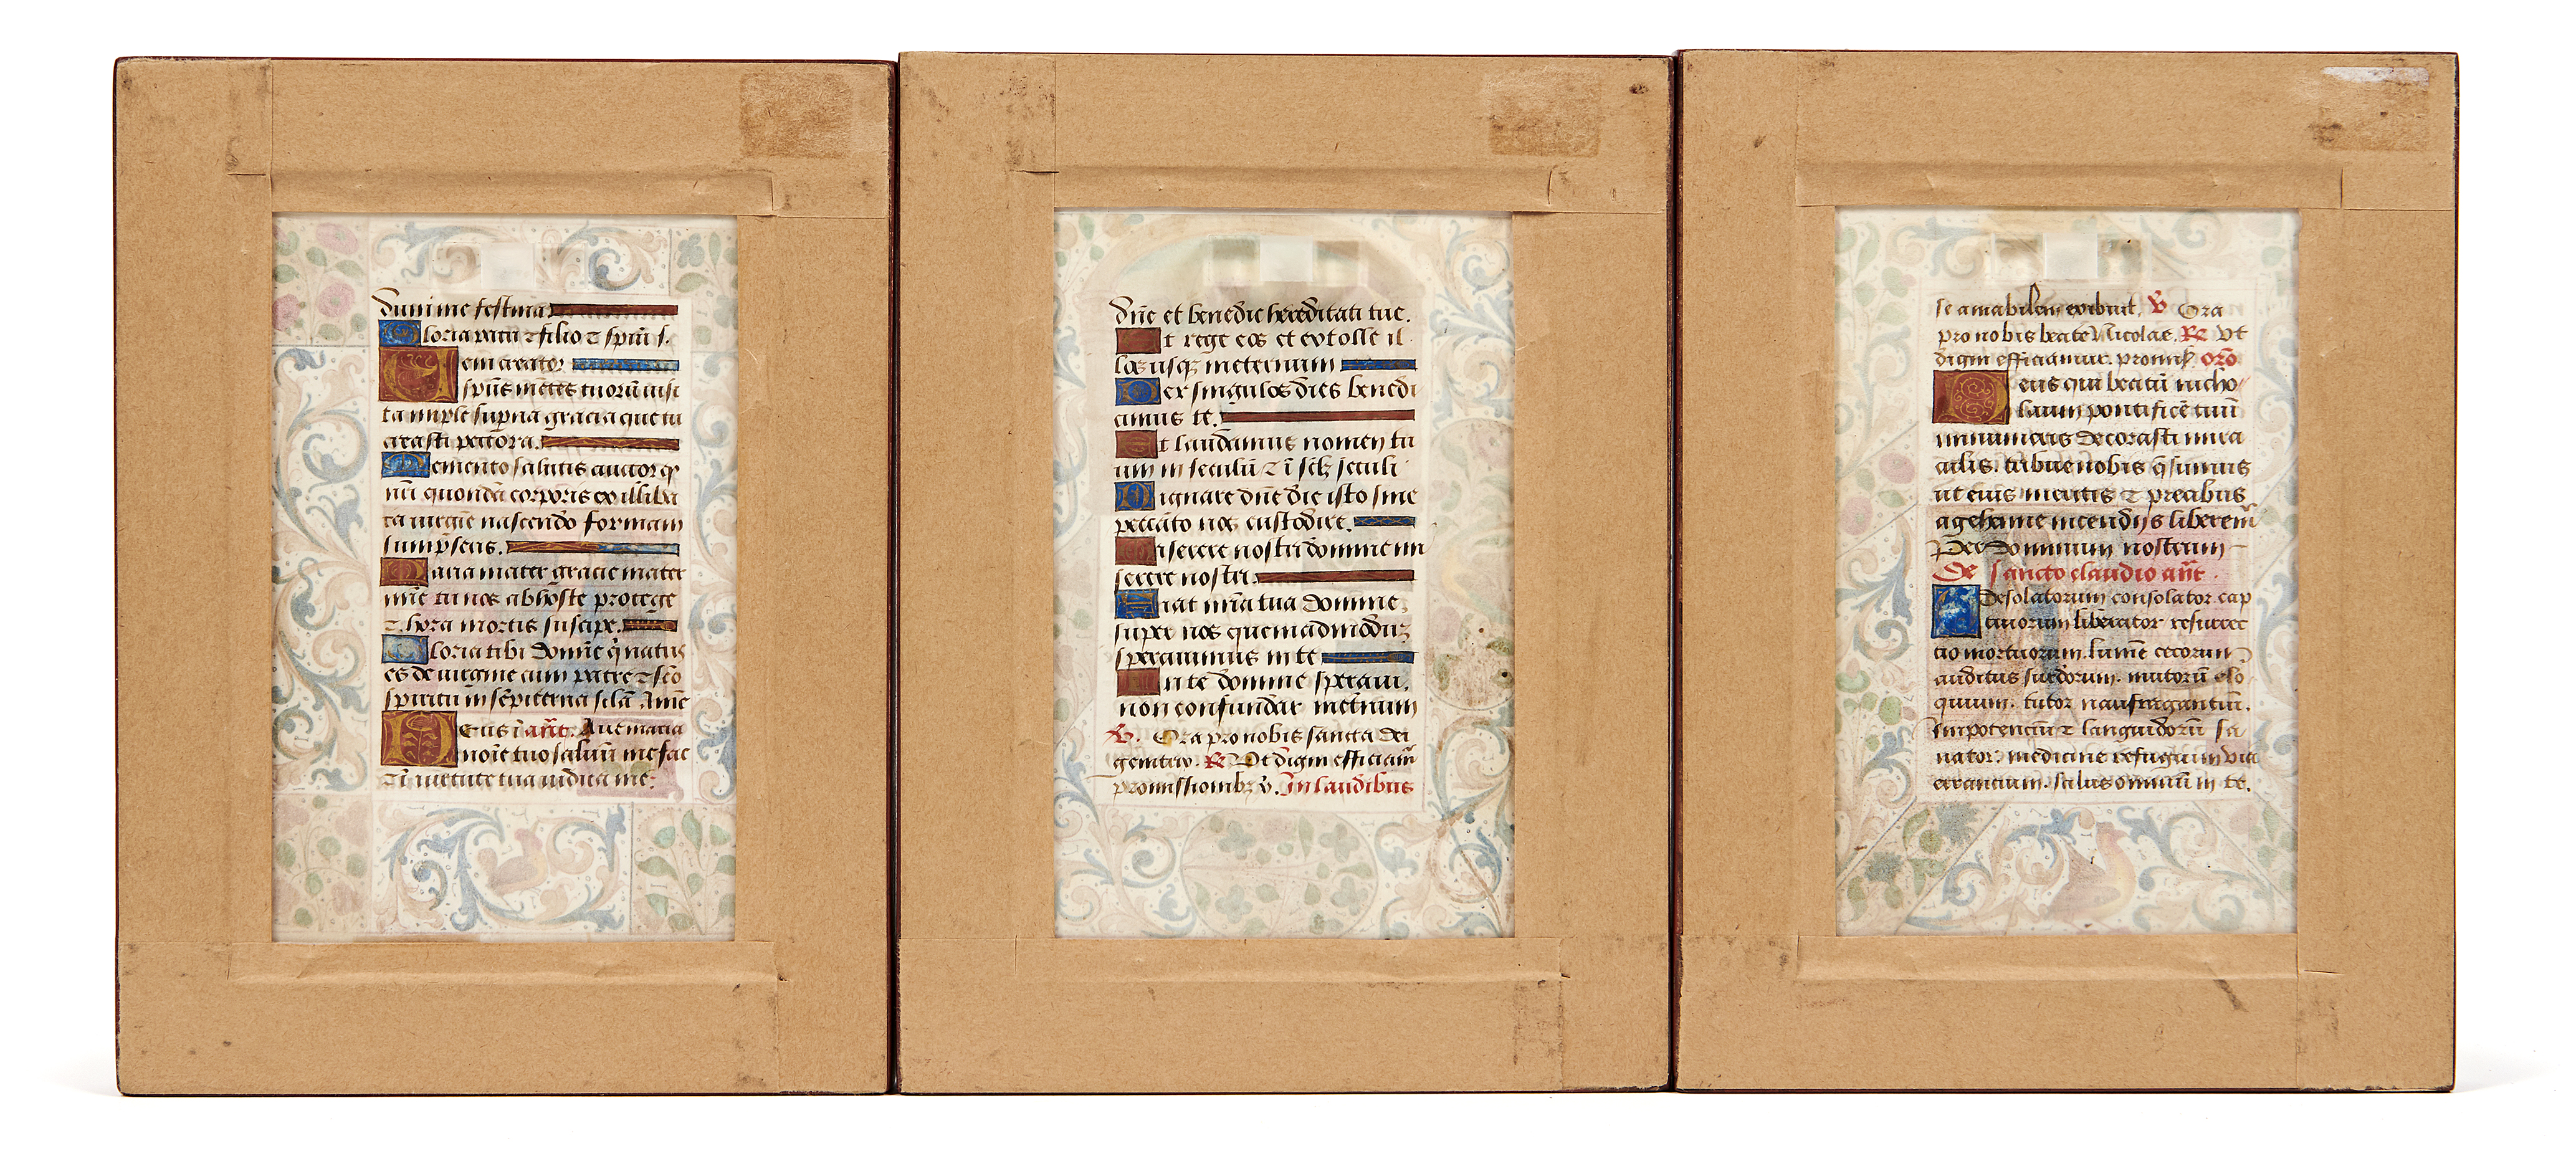 dum me festina
Gloria patri ⁊ filio ⁊ spiri s.
Veni creator
spūs mētes tuorū visi
ta imple supna gracia que tu
creasti pectora.
Memento salutis auctor qꝫ
nr̄i quondā corporis ex illiba
ta virgine nascendo formam
sumpseris.
Maria mater gracie mater
mīe tu nos ab hoste protege
⁊ hora mortis suscipe.
Gloria tibi domīe q̇ natus
es de virgine cum patre ⁊ sc̄o
spiritu in sēpiterna sc̄la Amē
Deus ī añt. Aue maria
noīe tuo saluū me fac
⁊ ī virtute tua iudica me.
dn̄e et benedic hereditati tue.
Et rege eos et extolle il
los usqꝫ in eternum
Per singulos dies benedi
cimus te.
Et laudamus nomen tu
um in seculū ⁊ ī sc̄lꝫ seculi
Dignare dn̄e die isto sine
peccato nos custodire.
Miserere nostri domine mi
serere nostri.
Fiat mīa tua domine
super nos quemadmodū
sperauimus in te
In te domine speraui.
non confundar in etnum
℣. Ora pro nobis sancta dei
genitrix. ℟ Vt digni efficiam̄
promissionibꝫ x̄. In laudibus
se amabilem exibuit. ℣ Ora
pro nobis beate Nicolae. ℟ Vt
digni efficiamur. promis. orō
Deus qui beatū nicho
laum pontificē tuū
innumeris decorasti mira
culis. tribue nobis q̄sumus
ut eius meritis ⁊ precibus
a gehenne incendiis liberem̄
Per dominum nostrum
De sancto claudio añt.
O desolatorum consolator. cap
tiuorum liberator resurrec
tio mortuorum. lumē cecorum
auditus surdorum. mutorū elo
quium. tutor naufragantiū.
Impotenciū ⁊ languidorū sa
nator. medicine refugium via
errancium. salus omniū in te.